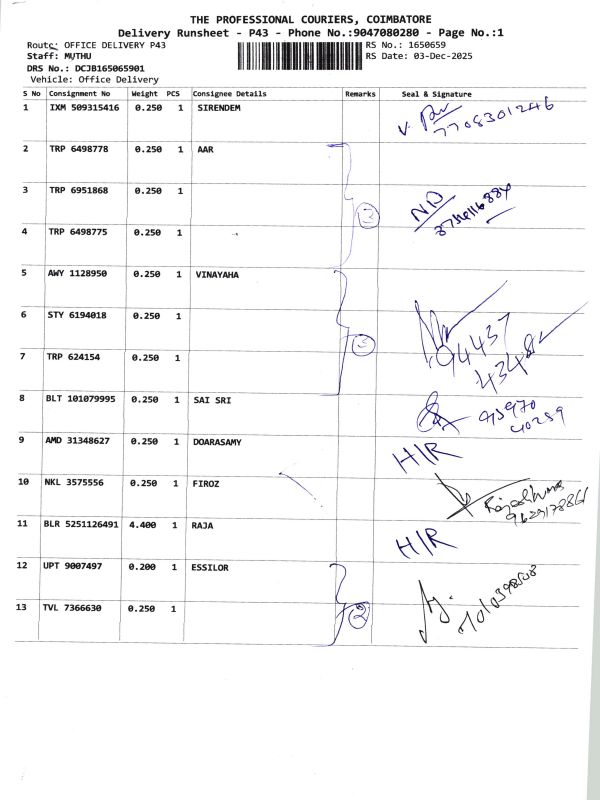 THE PROFESSIONAL COURIERS, COIMBATORE
Delivery Runsheet - P43 - Phone No.:9047080280 - Page No.:1
Route: OFFICE DELIVERY P43
Staff: MUTHU
DRS No.: DCJB165065901
Vehicle: Office Delivery
RS No.: 1650659
RS Date: 03-Dec-2025
S No Consignment No Weight PCS Consignee Details Remarks Seal & Signature
1 IXM 509315416 0.250 1 SIRENDEM 7708301246
2 TRP 6498778 0.250 1 AAR
3 TRP 6951868 0.250 1
4 TRP 6498775 0.250 1
5 AWY 1128950 0.250 1 VINAYAHA
6 STY 6194018 0.250 1
7 TRP 624154 0.250 1 3 94437
8 BLT 101079995 0.250 1 SAI SRI
9 AMD 31348627 0.250 1 DOARASAMY H/R
10 NKL 3575556 0.250 1 FIROZ
11 BLR 5251126491 4.400 1 RAJA H/R
12 UPT 9007497 0.200 1 ESSILOR
13 TVL 7366630 0.250 1 2